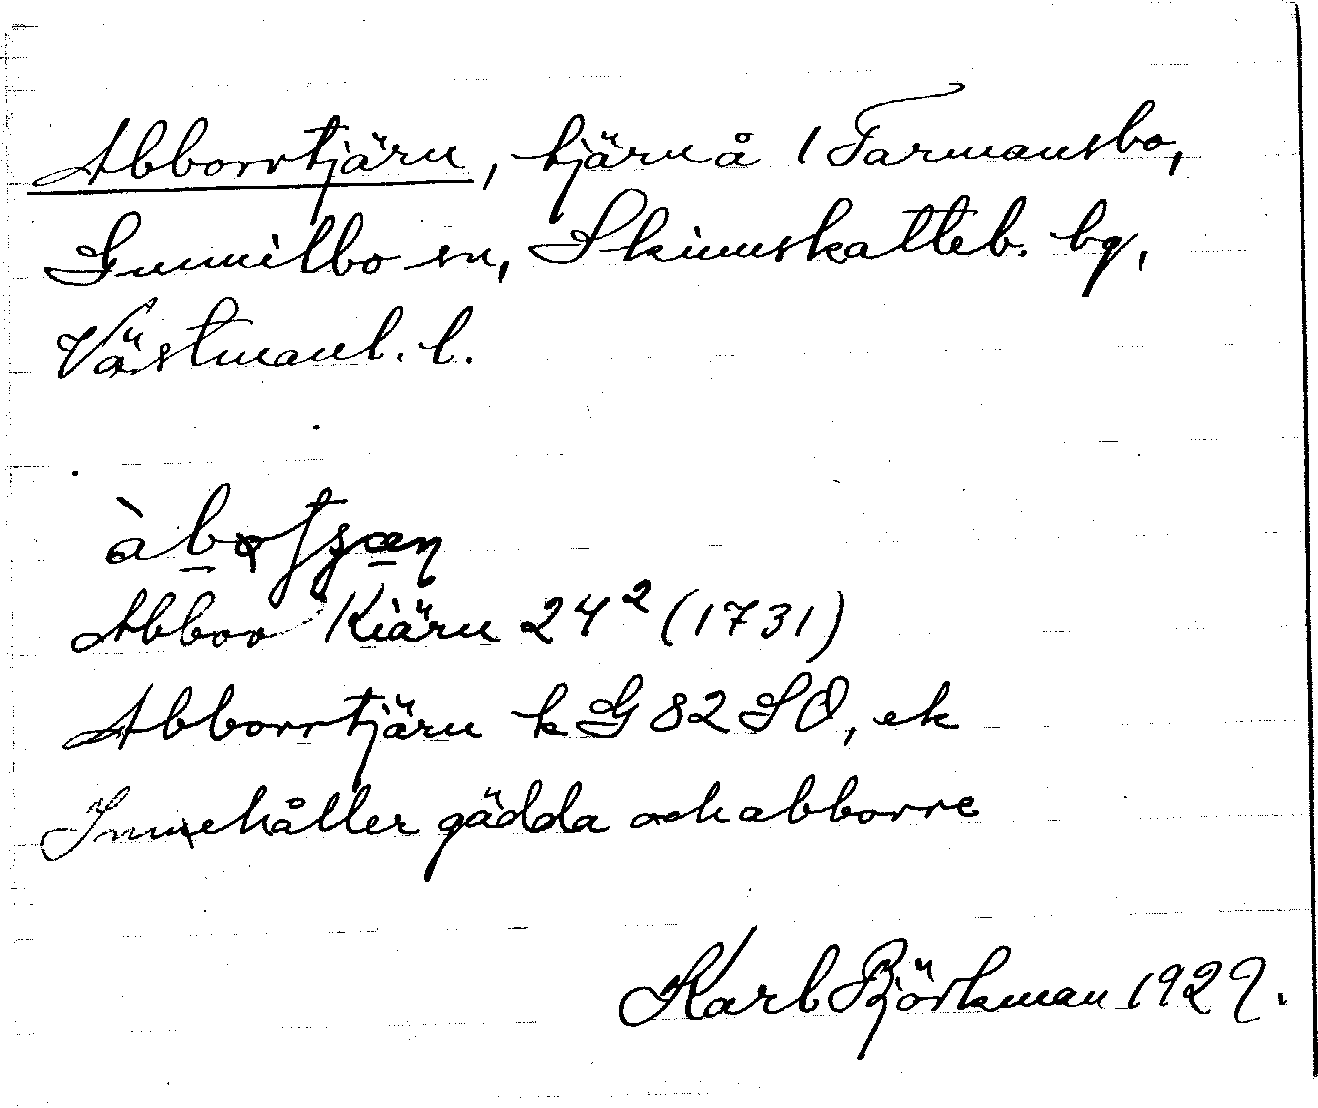 Abborrtjärn, tjärn å 1 Farmansbo,
Gunnilbo sn, Skinnskatteb. bg,
Västmanl. l.
Abbor Kiärn 24² (1731)
Abborrtjärn k G 82 SO, ek
Innehåller gädda och abborre
Karl Björkman 1929.